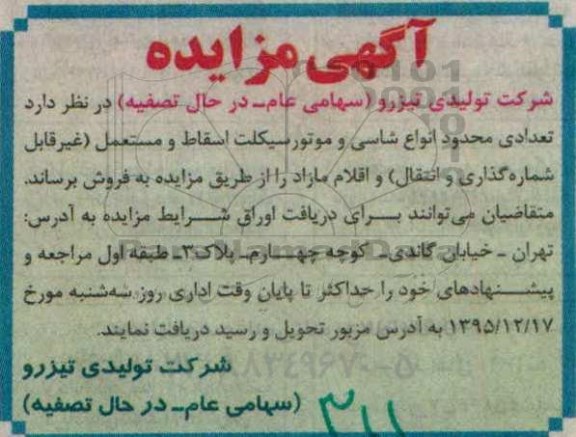 آگهی مزایده
شرکت تولیدی تیزرو (سهامی عام_ در حال تصفیه) در نظر دارد
تعدادی محدود انواع شاسی و موتورسیکلت اسقاط و مستعمل (غیرقابل
شماره‌گذاری و انتقال) و اقلام مازاد را از طریق مزایده به فروش برساند.
متقاضیان می‌توانند برای دریافت اوراق شرایط مزایده به آدرس:
تهران - خیابان گاندی_ کوچه چهارم_ پلاک۳_ طبقه اول مراجعه و
پیشنهادهای خود را حداکثر تا پایان وقت اداری روز سه‌شنبه مورخ
۱۳۹۵/۱۲/۱۷ به آدرس مزبور تحویل و رسید دریافت نمایند.
شرکت تولیدی تیزرو
(سهامی عام_ در حال تصفیه)
۳۱۱